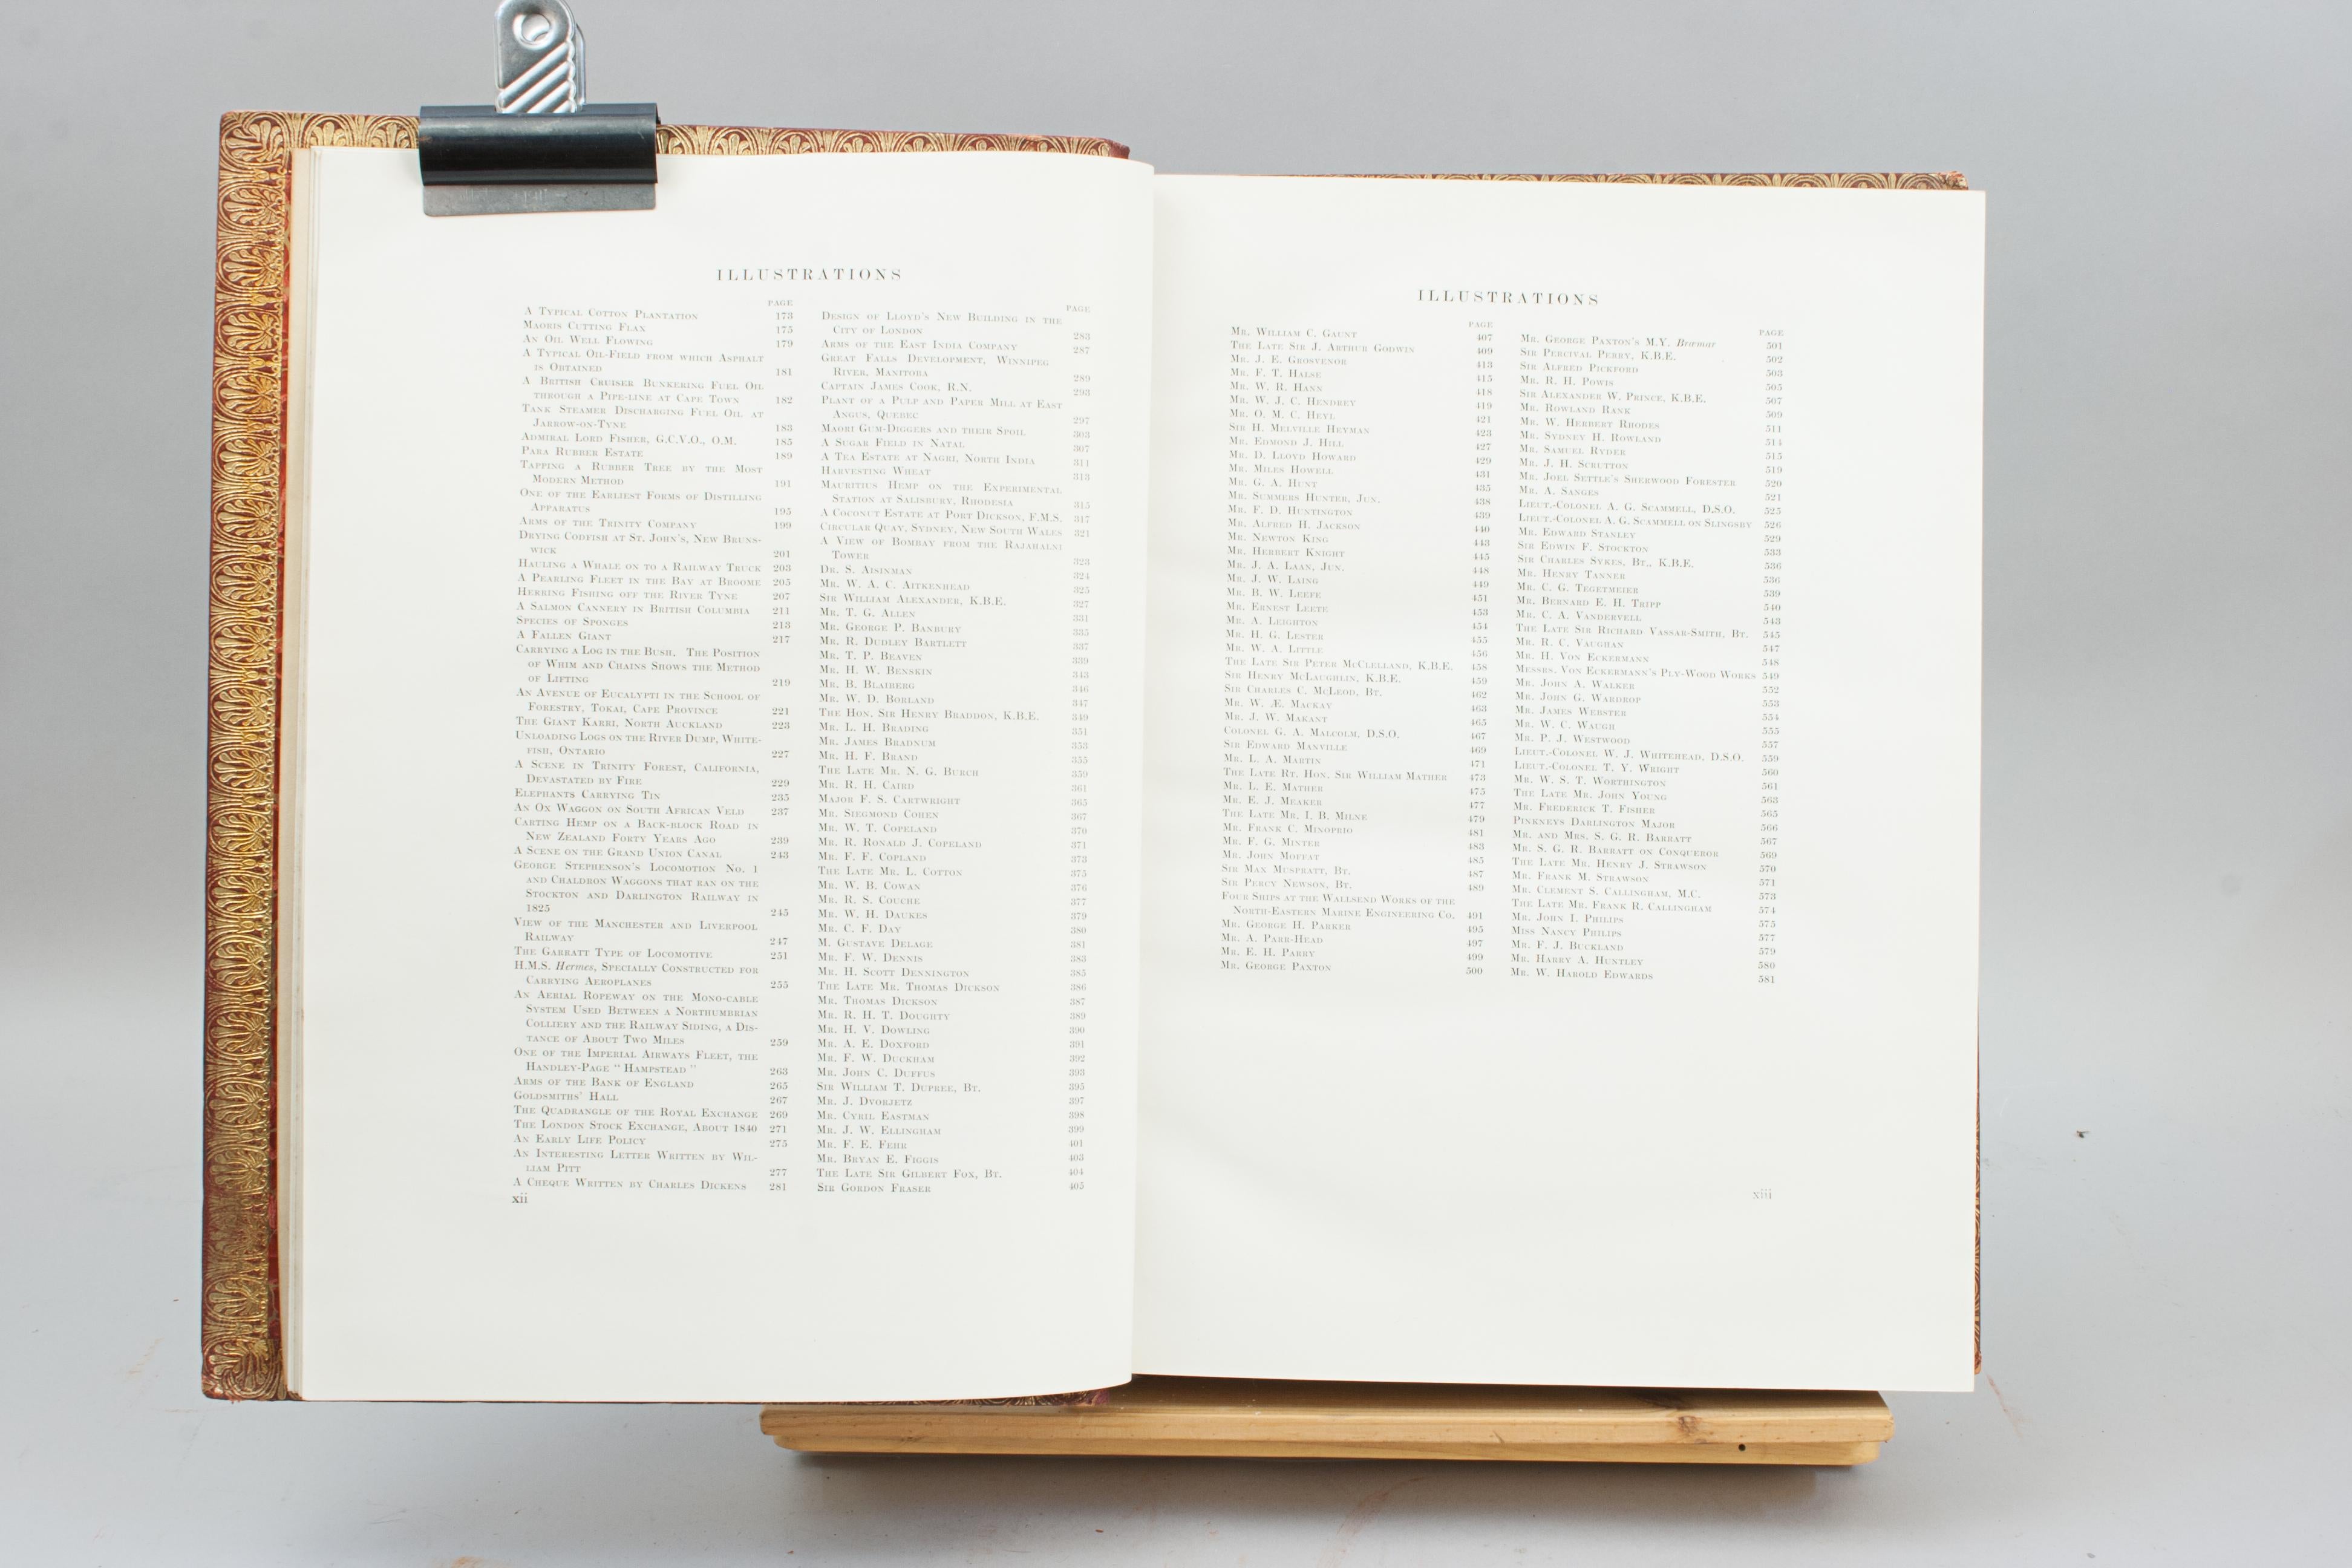 ILLUSTRATIONS
PAGE
A Typical Cotton Plantation 173
Maoris Cutting Flax 175
An Oil Well Flowing 179
A Typical Oil-Field from which Asphalt
is Obtained 181
A British Cruiser Bunkering Fuel Oil
through a Pipe-line at Cape Town 182
Tank Steamer Discharging Fuel Oil at
Jarrow-on-Tyne 183
Admiral Lord Fisher, G.C.V.O., O.M. 185
Para Rubber Estate 189
Tapping a Rubber Tree by the Most
Modern Method 191
One of the Earliest Forms of Distilling
Apparatus 195
Arms of the Trinity Company 199
Drying Codfish at St. John's, New Bruns-
wick 201
Hauling a Whale on to a Railway Truck 203
A Pearling Fleet in the Bay at Broome 205
Herring Fishing off the River Tyne 207
A Salmon Cannery in British Columbia 211
Species of Sponges 213
A Fallen Giant 217
Carrying a Log in the Bush. The Position
of Whim and Chains Shows the Method
of Lifting 219
An Avenue of Eucalypti in the School of
Forestry, Tokai, Cape Province 221
The Giant Karri, North Auckland 223
Unloading Logs on the River Dump, White-
fish, Ontario 227
A Scene in Trinity Forest, California,
Devastated by Fire 229
Elephants Carrying Tin 235
An Ox Waggon on South African Veld 237
Carting Hemp on a Back-block Road in
New Zealand Forty Years Ago 239
A Scene on the Grand Union Canal 243
George Stephenson's Locomotion No. 1
and Chaldron Waggons that ran on the
Stockton and Darlington Railway in
1825 245
View of the Manchester and Liverpool
Railway 247
The Garratt Type of Locomotive 251
H.M.S. Hermes, Specially Constructed for
Carrying Aeroplanes 255
An Aerial Ropeway on the Mono-cable
System Used Between a Northumbrian
Colliery and the Railway Siding, a Dis-
tance of About Two Miles 259
One of the Imperial Airways Fleet, the
Handley-Page "Hampstead" 263
Arms of the Bank of England 265
Goldsmiths' Hall 267
The Quadrangle of the Royal Exchange 269
The London Stock Exchange, About 1840 271
An Early Life Policy 275
An Interesting Letter Written by Wil-
liam Pitt 277
A Cheque Written by Charles Dickens 281
xii
PAGE
Design of Lloyd's New Building in the
City of London 283
Arms of the East India Company 287
Great Falls Development, Winnipeg
River, Manitoba 289
Captain James Cook, R.N. 293
Plant of a Pulp and Paper Mill at East
Angus, Quebec 297
Maori Gum-Diggers and their Spoil 303
A Sugar Field in Natal 307
A Tea Estate at Nagri, North India 311
Harvesting Wheat 313
Mauritius Hemp on the Experimental
Station at Salisbury, Rhodesia 315
A Coconut Estate at Port Dickson, F.M.S. 317
Circular Quay, Sydney, New South Wales 321
A View of Bombay from the Rajabalni
Tower 323
Dr. S. Aisinman 324
Mr. W. A. C. Aitkenhead 325
Sir William Alexander, K.B.E. 327
Mr. T. G. Allen 331
Mr. George P. Banbury 335
Mr. R. Dudley Bartlett 337
Mr. T. P. Beaven 339
Mr. H. W. Benskin 343
Mr. B. Blaiberg 346
Mr. W. D. Borland 347
The Hon. Sir Henry Braddon, K.B.E. 349
Mr. L. H. Brading 351
Mr. James Bradnum 353
Mr. H. F. Brand 355
The Late Mr. N. G. Burch 359
Mr. R. H. Caird 361
Major F. S. Cartwright 365
Mr. Siegmond Cohen 367
Mr. W. T. Copeland 370
Mr. R. Ronald J. Copeland 371
Mr. F. F. Copland 373
The Late Mr. L. Cotton 375
Mr. W. B. Cowan 376
Mr. R. S. Couche 377
Mr. W. H. Daukes 379
Mr. C. F. Day 380
M. Gustave Delage 381
Mr. F. W. Dennis 383
Mr. H. Scott Dennington 385
The Late Mr. Thomas Dickson 386
Mr. Thomas Dickson 387
Mr. R. H. T. Doughty 389
Mr. H. V. Dowling 390
Mr. A. E. Doxford 391
Mr. F. W. Duckham 392
Mr. John C. Duffus 393
Sir William T. Dupree, Bt. 395
Mr. J. Dvorjetz 397
Mr. Cyril Eastman 398
Mr. J. W. Ellingham 399
Mr. F. E. Fehr 401
Mr. Bryan E. Figgis 403
The Late Sir Gilbert Fox, Bt. 404
Sir Gordon Fraser 405
ILLUSTRATIONS
PAGE
Mr. William C. Gaunt 407
The Late Sir J. Arthur Godwin 409
Mr. J. E. Grosvenor 413
Mr. F. T. Halse 415
Mr. W. R. Hann 418
Mr. W. J. C. Hendrey 419
Mr. O. M. C. Heyl 421
Sir H. Melville Heyman 423
Mr. Edmond J. Hill 427
Mr. D. Lloyd Howard 429
Mr. Miles Howell 431
Mr. G. A. Hunt 435
Mr. Summers Hunter, Jun. 438
Mr. F. D. Huntington 439
Mr. Alfred H. Jackson 440
Mr. Newton King 443
Mr. Herbert Knight 445
Mr. J. A. Laan, Jun. 448
Mr. J. W. Laing 449
Mr. B. W. Leefe 451
Mr. Ernest Leete 453
Mr. A. Leighton 454
Mr. H. G. Lester 455
Mr. W. A. Little 456
The Late Sir Peter McClelland, K.B.E. 458
Sir Henry McLaughlin, K.B.E. 459
Sir Charles C. McLeod, Bt. 462
Mr. W. Æ. Mackay 463
Mr. J. W. Makant 465
Colonel G. A. Malcolm, D.S.O. 467
Sir Edward Manville 469
Mr. L. A. Martin 471
The Late Rt. Hon. Sir William Mather 473
Mr. L. E. Mather 475
Mr. E. J. Meaker 477
The Late Mr. I. B. Milne 479
Mr. Frank C. Minoprio 481
Mr. F. G. Minter 483
Mr. John Moffat 485
Sir Max Muspratt, Bt. 487
Sir Percy Newson, Bt. 489
Four Ships at the Wallsend Works of the
North-Eastern Marine Engineering Co. 491
Mr. George H. Parker 495
Mr. A. Parr-Head 497
Mr. E. H. Parry 499
Mr. George Paxton 500
PAGE
Mr. George Paxton's M.Y. Bræmar 501
Sir Percival Perry, K.B.E. 502
Sir Alfred Pickford 503
Mr. R. H. Powis 505
Sir Alexander W. Prince, K.B.E. 507
Mr. Rowland Rank 509
Mr. W. Herbert Rhodes 511
Mr. Sydney H. Rowland 514
Mr. Samuel Ryder 515
Mr. J. H. Scrutton 519
Mr. Joel Settle's Sherwood Forester 520
Mr. A. Sanges 521
Lieut.-Colonel A. G. Scammell, D.S.O. 525
Lieut.-Colonel A. G. Scammell on Slingsby 526
Mr. Edward Stanley 529
Sir Edwin F. Stockton 533
Sir Charles Sykes, Bt., K.B.E. 536
Mr. Henry Tanner 536
Mr. C. G. Tegetmeier 539
Mr. Bernard E. H. Tripp 540
Mr. C. A. Vandervell 543
The Late Sir Richard Vassar-Smith, Bt. 545
Mr. R. C. Vaughan 547
Mr. H. Von Eckermann 548
Messrs. Von Eckermann's Ply-Wood Works 549
Mr. John A. Walker 552
Mr. John G. Wardrop 553
Mr. James Webster 554
Mr. W. C. Waugh 555
Mr. P. J. Westwood 557
Lieut.-Colonel W. J. Whitehead, D.S.O. 559
Lieut.-Colonel T. Y. Wright 560
Mr. W. S. T. Worthington 561
The Late Mr. John Young 563
Mr. Frederick T. Fisher 565
Pinkneys Darlington Major 566
Mr. and Mrs. S. G. R. Barratt 567
Mr. S. G. R. Barratt on Conqueror 569
The Late Mr. Henry J. Strawson 570
Mr. Frank M. Strawson 571
Mr. Clement S. Callingham, M.C. 573
The Late Mr. Frank R. Callingham 574
Mr. John I. Philips 575
Miss Nancy Philips 577
Mr. F. J. Buckland 579
Mr. Harry A. Huntley 580
Mr. W. Harold Edwards 581
xiii